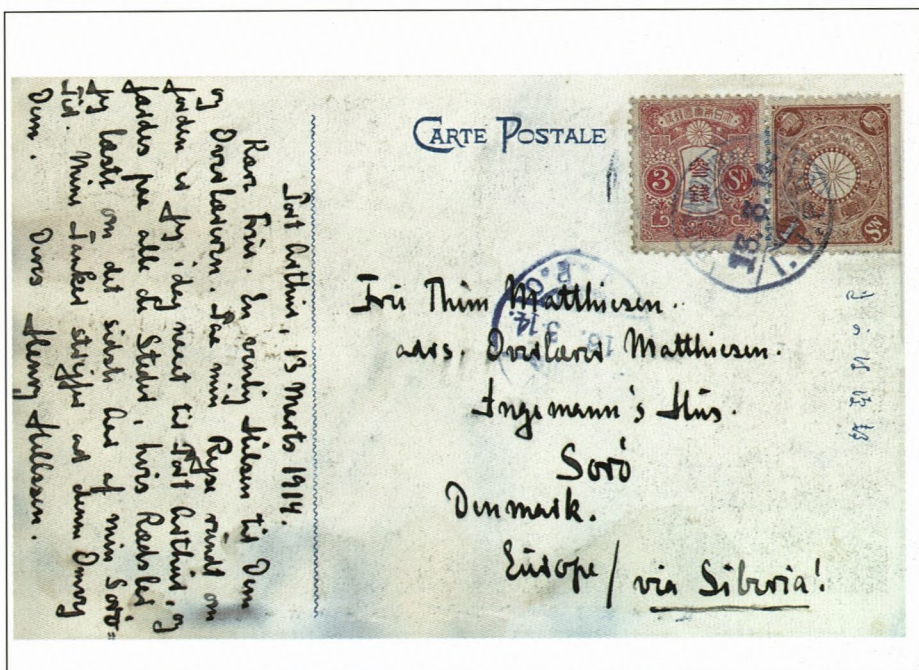 CARTE POSTALE
Port Arthur, 13 Marts 1914.
Kære Frue. En venlig Hilsen til Dem
og Overlæreren. Paa min Rejse rundt om
Jorden er jeg i dag naaet til Port Arthur, og
færdes paa alle de Steder, hvis Rædsler
jeg læste om det sidste Aar af min Sorø-
Tid. Mine Tanker stryger ad denne Omvej
Dem. Deres Henry Hellssen.
3 SN
参銭
SN
13.3.14
I.J.P.O.
18.3.14.
Frü Thim Matthiesen.
adrs. Overlærer Matthiesen.
Ingemann's Hüs.
Sorö
Denmark.
Eürope / via Siberia!